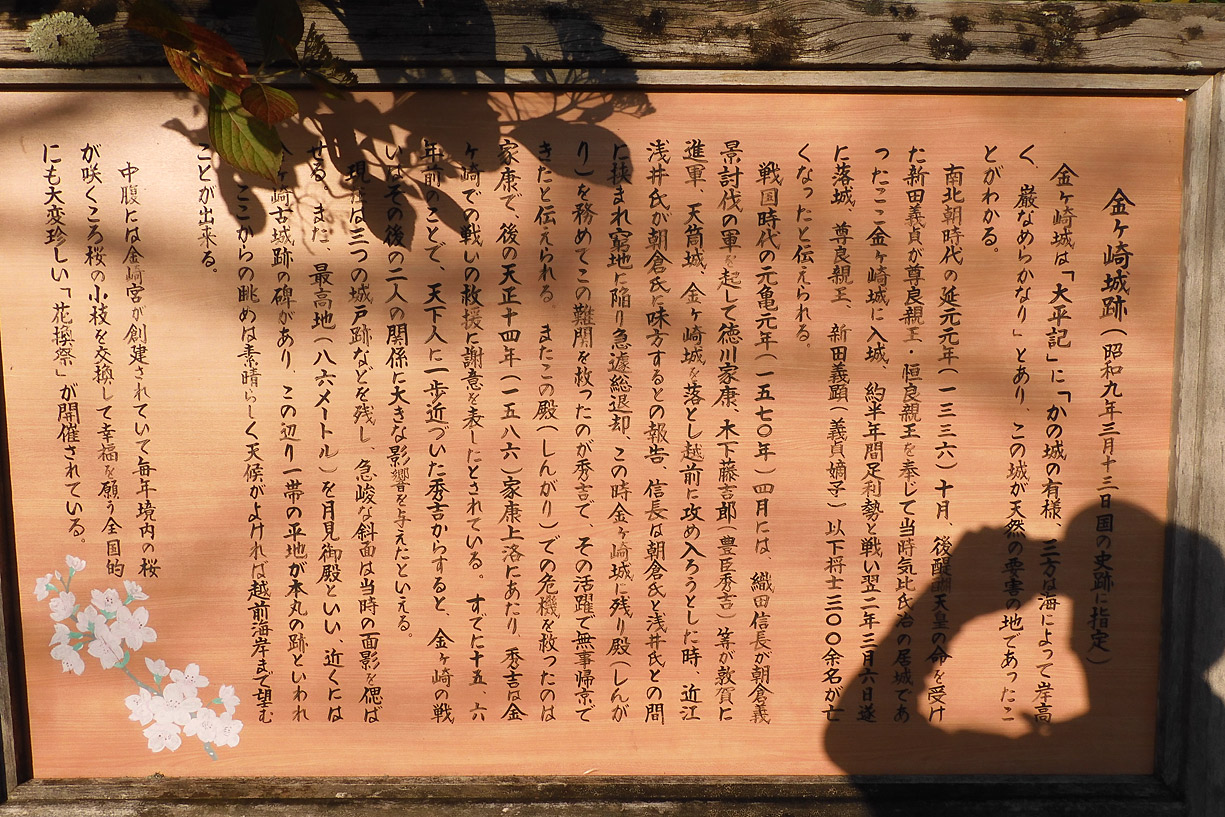 金ヶ崎城跡(昭和九年三月十三日国の史跡に指定)
金ヶ崎城は「太平記」に「かの城の有様、三方は海によって岸高
く、巌なめらかなり」とあり、この城が天然の要害の地であったこ
とがわかる。
南北朝時代の延元元年(一三三六)十月、後醍醐天皇の命を受け
た新田義貞が尊良親王・恒良親王を奉じて当時気比氏治の居城であ
ったここ金ヶ崎城に入城、約半年間足利勢と戦い翌二年三月六日遂
に落城、尊良親王、新田義顕(義貞嫡子)以下将士三〇〇余名が亡
くなったと伝えられる。
戦国時代の元亀元年(一五七〇年)四月には、織田信長が朝倉義
景討伐の軍を起して徳川家康、木下藤吉郎(豊臣秀吉)等が敦賀に
進軍、天筒城、金ヶ崎城を落とし越前に攻め入ろうとした時、近江
浅井氏が朝倉氏に味方するとの報告、信長は朝倉氏と浅井氏との間
に挟まれ窮地に陥り急遽総退却、この時金ヶ崎城に残り殿(しんが
り)を務めてこの難関を救ったのが秀吉で、その活躍で無事帰京で
きたと伝えられる。またこの殿(しんがり)での危機を救ったのは
家康で、後の天正十四年(一五八六)家康上洛にあたり、秀吉は金
ヶ崎での戦いの救援に謝意を表したとされている。すでに十五、六
年前のことで、天下人に一歩近づいた秀吉からすると、金ヶ崎の戦
いはその後の二人の関係に大きな影響を与えたといえる。
現在は三つの城戸跡などを残し、急峻な斜面は当時の面影を偲ば
せる。また、最高地(八六メートル)を月見御殿といい、近くには
金ヶ崎古城跡の碑があり、この辺り一帯の平地が本丸の跡といわれ
ここからの眺めは素晴らしく天候がよければ越前海岸まで望む
ことが出来る。
中腹には金崎宮が創建されていて毎年境内の桜
が咲くころ桜の小枝を交換して幸福を願う全国的
にも大変珍しい「花換祭」が開催されている。